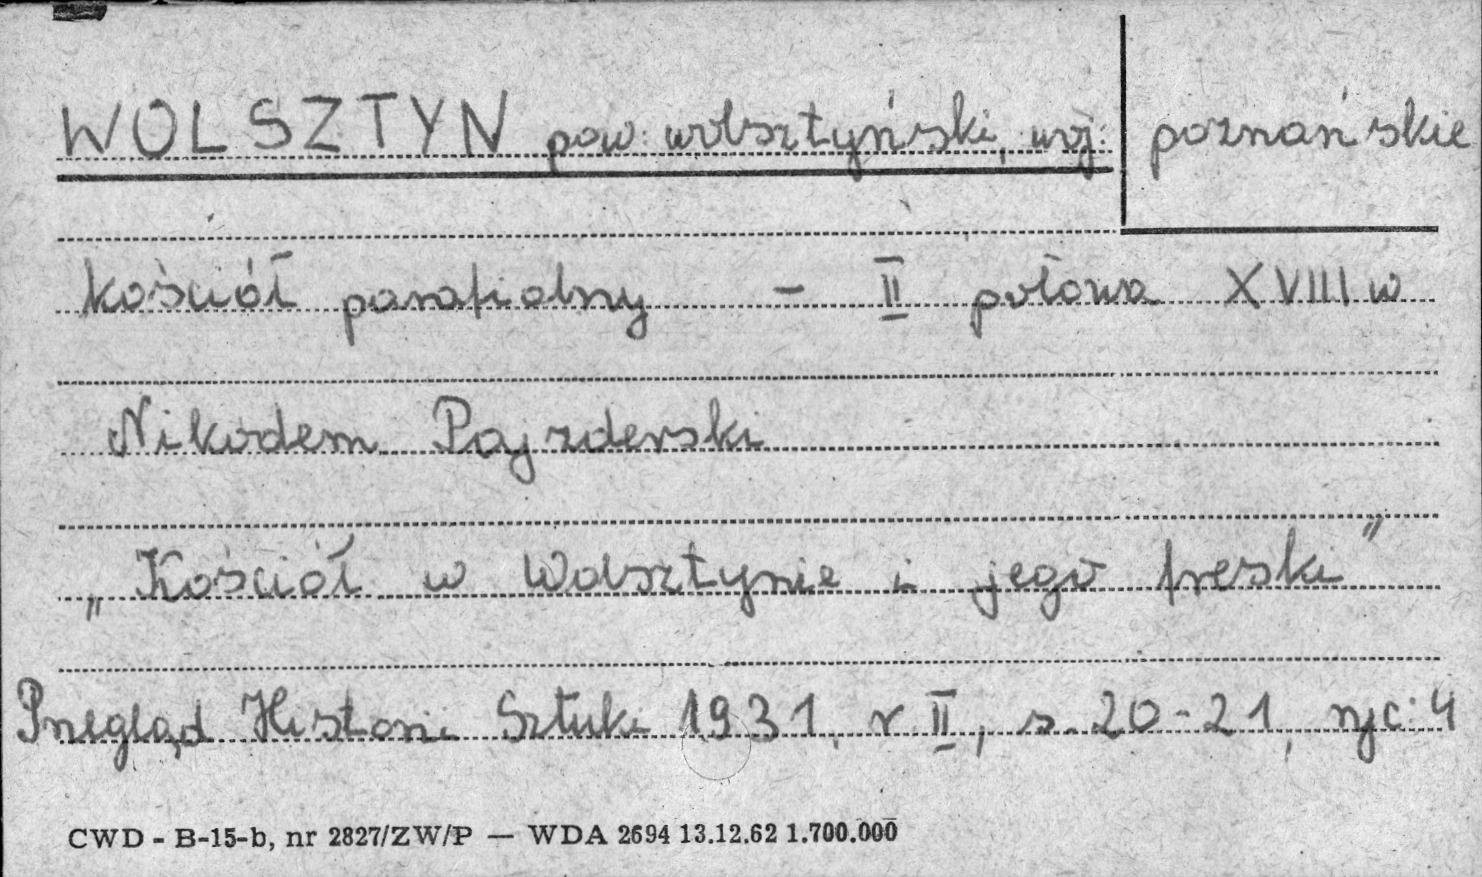 WOLSZTYN pow: wolsztyński, woj: poznańskie
kościół parafialny - II połowa XVIII w
Nikodem Pajzderski
„Kościół w Wolsztynie i jego freski"
Przegląd Historii Sztuki 1931, r II, s. 20-21, ryc: 4
CWD - B-15-b, nr 2827/ZW/P — WDA 2694 13.12.62 1.700.000